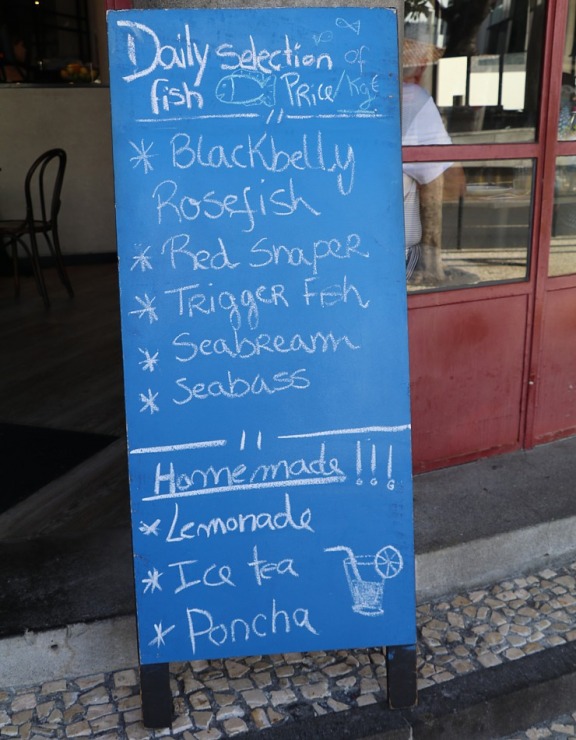 Daily selection of
fish Price/Kg€
* Blackbelly
Rosefish
* Red Snaper
* Trigger Fish
* Seabream
* Seabass
Homemade!!!
* Lemonade
* Ice tea
* Poncha